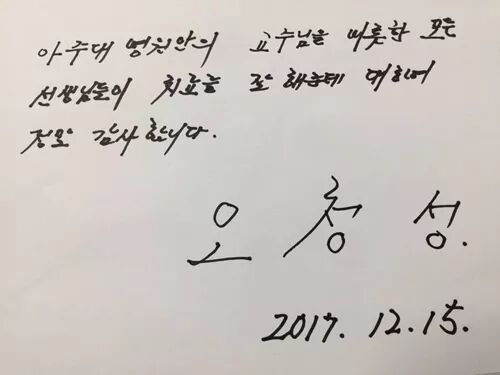 아주대 병원안의 교수님을 비롯한 모든
선생님들이 치료를 잘 해준데 대하여
정말 감사합니다.
오 청 성.
2017. 12. 15.